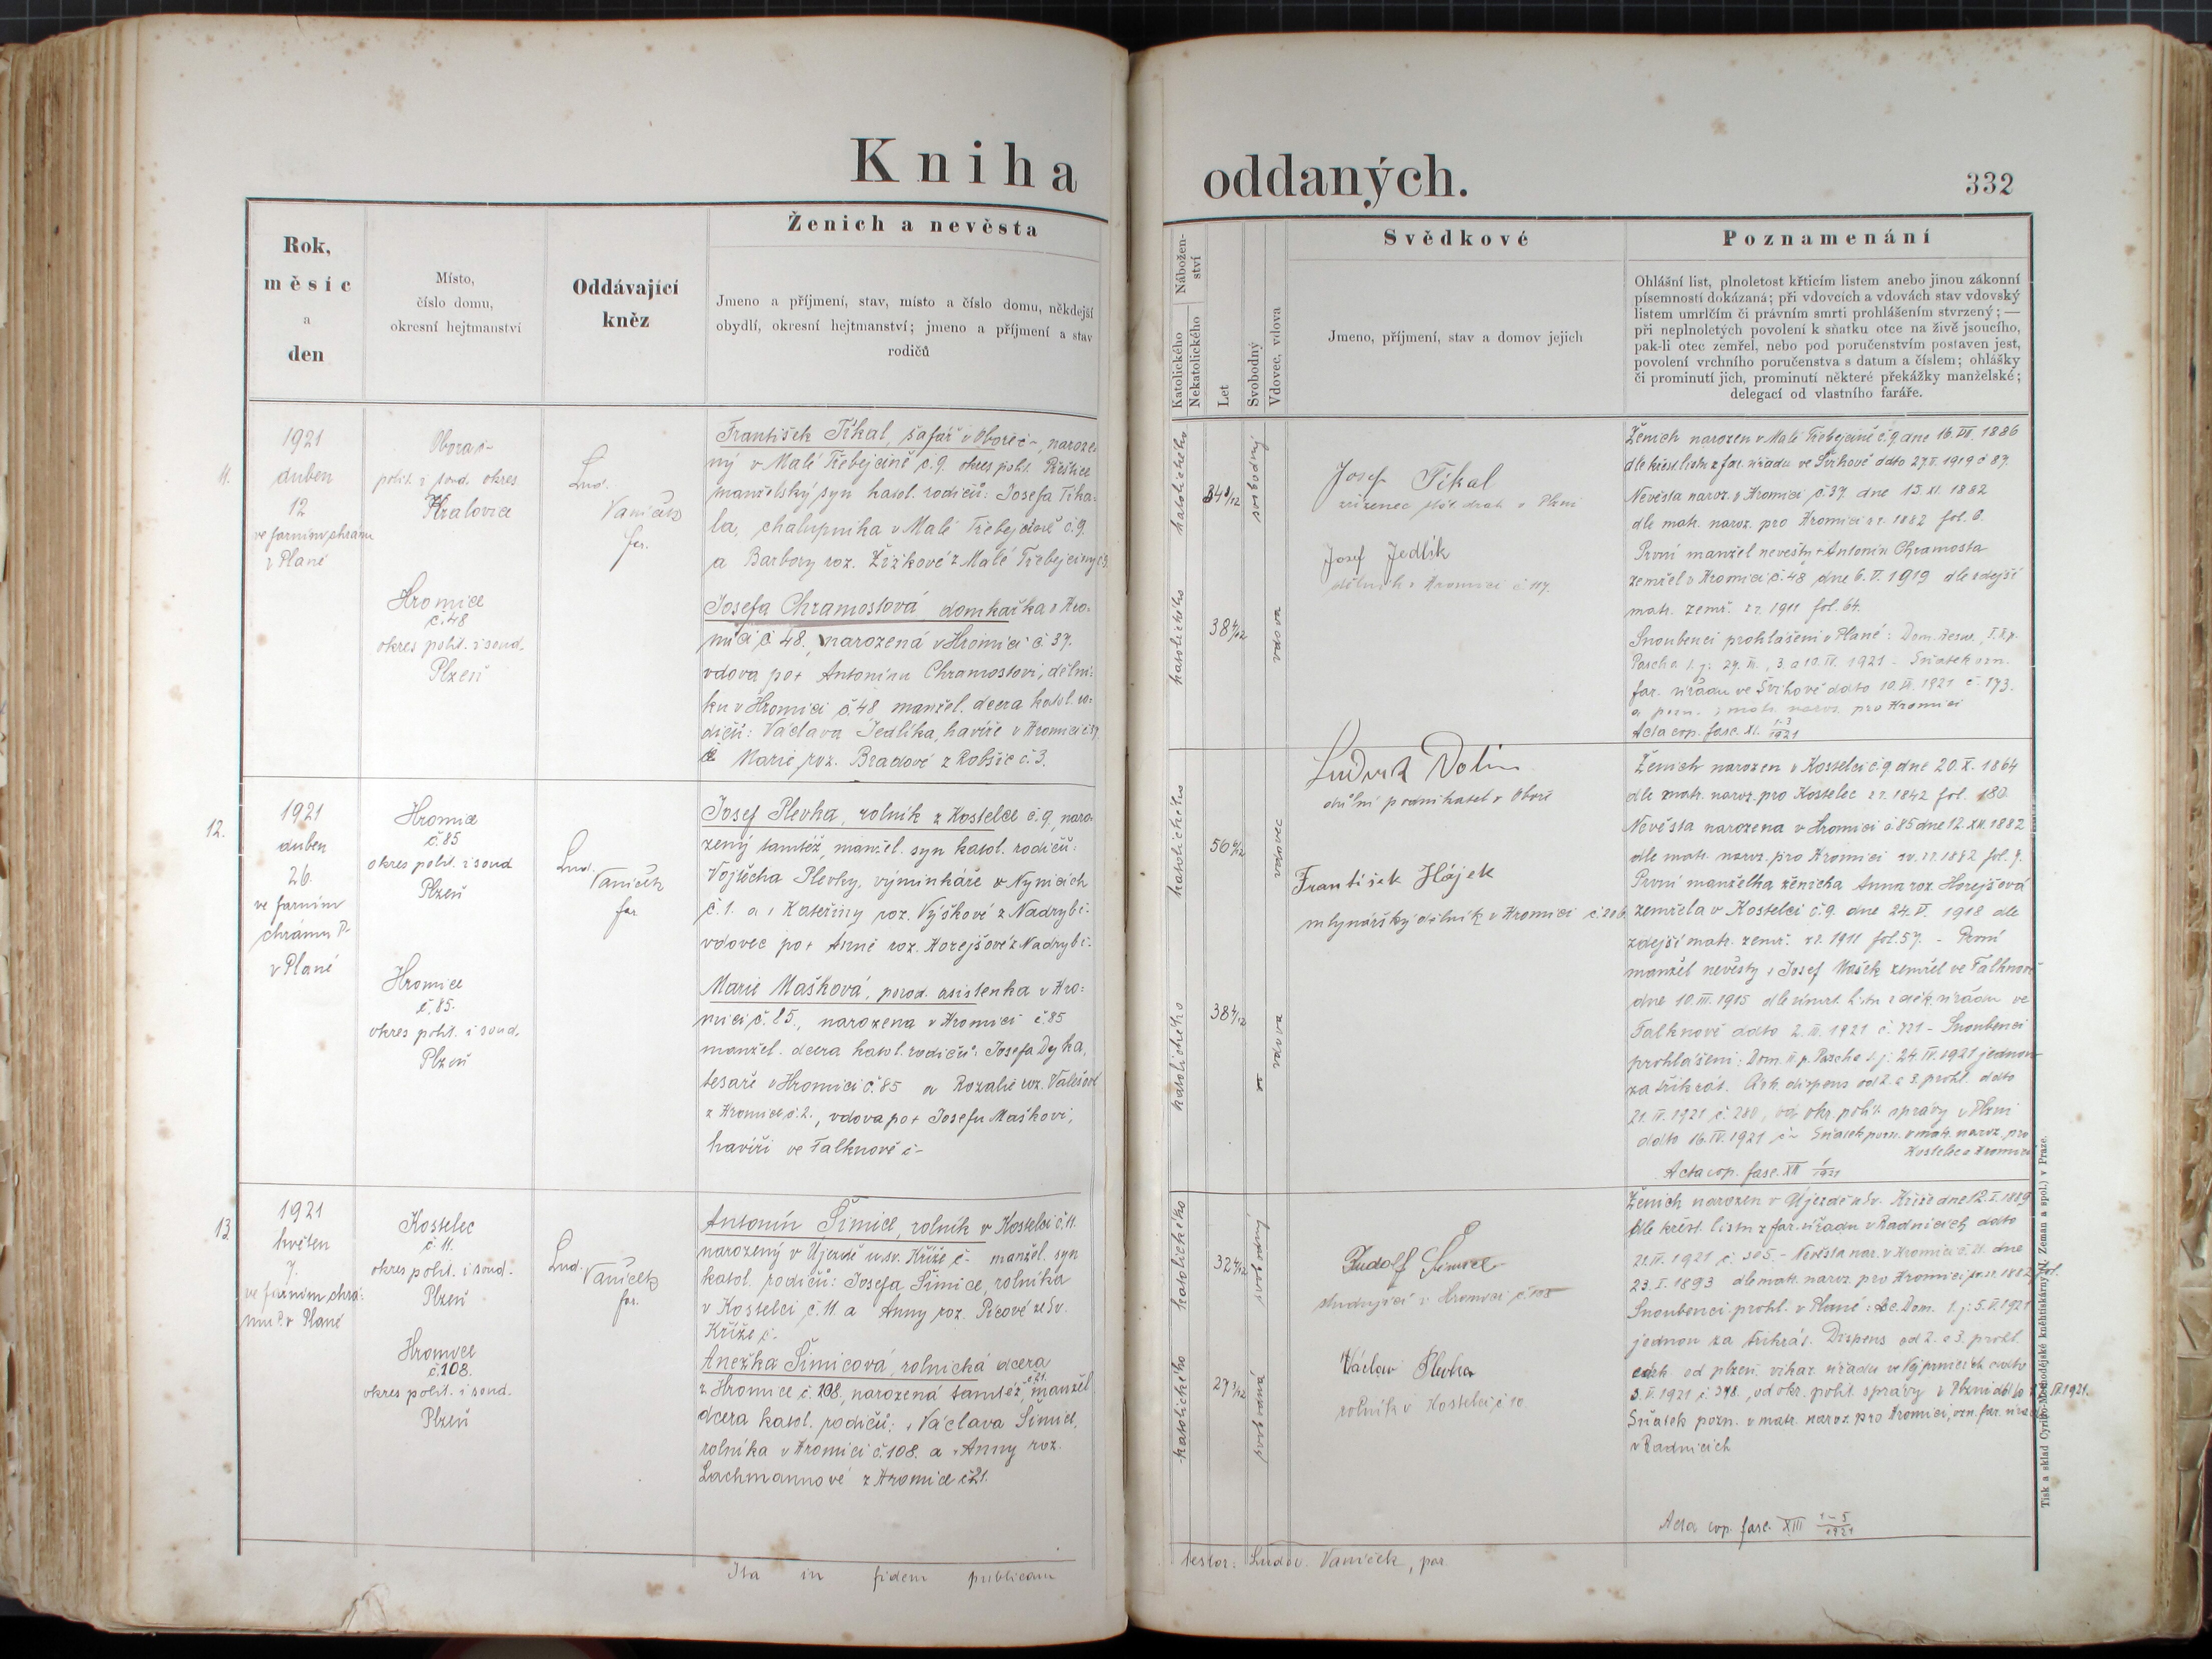 Kniha
oddaných.
332
Rok,
měsíc
a
den
Místo,
číslo domu,
okresní hejtmanství
Oddávající
kněz
Ženich a nevěsta
Jmeno a příjmení, stav, místo a číslo domu, někdejší
obydlí, okresní hejtmanství; jmeno a příjmení a stav
rodičů
Nábožen-
ství
Katolického
Nekatolického
Let
Svobodný
Vdovec, vdova
Svědkové
Jmeno, příjmení, stav a domov jejich
Poznamenání
Ohlášní list, plnoletost křticím listem anebo jinou zákonní
písemností dokázaná; při vdovcích a vdovách stav vdovský
listem umrlčím či právním smrti prohlášením stvrzený; —
při neplnoletých povolení k sňatku otce na živě jsoucího,
pak-li otec zemřel, nebo pod poručenstvím postaven jest,
povolení vrchního poručenstva s datum a číslem; ohlášky
či prominutí jich, prominutí některé překážky manželské;
delegací od vlastního faráře.
11.
1921
duben
12
ve farním chrámu
v Plané
Obora č-
polit. i soud. okres
Kralovice
Hromice
č. 48
okres polit. i soud.
Plzeň
Lud.
Vaníček
far.
František Tikal, šafář v Oboře č-, naroze-
ný v Malé Třebejcině č. 9. okres polit. Přeštice
manželský syn katol. rodičů: Josefa Tika-
la, chalupníka v Malé Třebejcině č. 9.
a Barbory roz. Žižkové z Malé Třebejciny
Josefa Chramostová domkařka v Hro-
mici č. 48., narozená v Hromici č. 37.
vdova po + Antonínu Chramostovi, dělní-
ku v Hromici č. 48 manžel. dcera katol. ro-
dičů: Václava Jedlíka, havíře v Hromici
a Marie roz. Bradové z Robšic č. 3.
katolického
34 8/12
svobodný
katolického
38 4/12
vdova
Josef Tikal
zřízenec stát. drah v Plzni
Josef Jedlík
dělník v Hromici č. 117.
Ženich narozen v Malé Třebejcině č. 9 dne 16. VII. 1886
dle křest. listu z far. úřadu ve Švihově ddto 27. V. 1919 č 87.
Nevěsta naroz. v Hromici č. 37. dne 15. XI. 1882
dle matr. naroz. pro Hromici z r. 1882 fol. 6.
První manžel nevěsty + Antonín Chramosta
zemřel v Hromici č. 48 dne 6. V. 1919 dle zdejší
matr. zemř. z r. 1911 fol. 64.
Snoubenci prohlášeni v Plané: Dom. Resur., I. II. p.
Pascha t. j.: 27. III., 3. a 10. IV. 1921 – Sňatek ozn.
far. úřadu ve Švihově ddto 10. IV. 1921 č. 173.
a pozn. v matr. naroz. pro Hromici
Acta cop. fasc. XI. 1-3/1921
12.
1921
duben
26.
ve farním
chrámu P.
v Plané
Hromice
č. 85
okres polit. i soud
Plzeň
Hromice
č. 85.
okres polit. i soud.
Plzeň
Lud.
Vaníček
far.
Josef Plevka, rolník z Kostelce č. 9, naro-
zený tamtéž, manžel. syn katol. rodičů:
Vojtěcha Plevky, výminkáře v Nynicích
č. 1. a + Kateřiny roz. Výškové z Nadryb č-
vdovec po + Anně roz. Horejšové z Nadryb č-
Marie Mašková, porod. asistenka v Hro-
mici č. 85., narozena v Hromici č. 85
manžel. dcera katol. rodičů: Josefa Dyka,
tesaře v Hromici č. 85 a Rozalie roz. Valešové
z Hromice č. 2., vdova po + Josefu Maškovi,
havíři ve Falknově č-
katolického
56 6/12
vdovec
katolického
38 4/12
vdova
Ludvík Dolin
důlní podnikatel v Oboře
František Hájek
mlynářský dělník v Hromici
Ženich narozen v Kostelci č. 9 dne 20. X. 1864
dle matr. naroz. pro Kostelec z r. 1842 fol. 180
Nevěsta narozena v Hromici č. 85 dne 12. XII. 1882
dle matr. naroz. pro Hromici z r. 1882 fol. 7.
První manželka ženicha Anna roz. Horejšová
zemřela v Kostelci č. 9. dne 24. V. 1918 dle
zdejší matr. zemř. z r. 1911 fol. 57. – První
manžel nevěsty + Josef Mašek zemřel ve Falknově
dne 10. III. 1915 dle úmrt. listu z děk. úřadu ve
Falknově ddto 2. III. 1921 č. 821 – Snoubenci
prohlášeni: Dom. II. p. Pascha t. j.: 24. IV. 1921 jednou
za třikrát. Círk. dispens od 2. a 3. prohl. ddto
21. IV. 1921 č. 280, od okr. polit. správy v Plzni
ddto 16. IV. 1921 č- Sňatek pozn. v matr. naroz. pro
Kostelec a Hromici
Acta cop. fasc. XII 1/1921
13
1921
květen
7.
ve farním chrá-
mu P. v Plané
Kostelec
č. 11.
okres polit. i soud.
Plzeň
Hromice
č. 108.
okres polit. i soud.
Plzeň
Lud.
Vaníček
far.
Antonín Šimice, rolník v Kostelci č. 11.
narozený v Újezdě u sv. Kříže č- manžel. syn
katol. rodičů: Josefa Šimice, rolníka
v Kostelci č. 11. a Anny roz. Picové ze Sv.
Kříže č-
Anežka Šimicová, rolnická dcera
z Hromice č. 108, narozená tamtéž č 21. manžel
dcera katol. rodičů: + Václava Šimice,
rolníka v Hromici č. 108. a + Anny roz.
Lachmannové z Hromice č 21.
katolického
32 4/12
svobodný
katolického
27 3/12
svobodná
Rudolf Šimice
studující v Hromici č. 108
Václav Plevka
rolník v Kostelci č 10.
Ženich narozen v Újezdě u Sv. Kříže dne 12. I. 1889
dle křest. listu z far. úřadu v Radnicích ddto
21. IV. 1921 č. 305 – Nevěsta nar. v Hromici č. 21. dne
23. I. 1893 dle matr. naroz. pro Hromici z r. 1882 fol.
Snoubenci prohl. v Plané: Asc. Dom. t. j: 5. V. 1921
jednou za třikrát. Dispens od 2. a 3. prohl.
církh. od plzeň. vikar. úřadu ve Vejprnicích ddto
3. V. 1921 č. 398, od okr. polit. správy v Plzni ddto
Sňatek pozn. v matr. naroz. pro Hromici, ozn. far. úřadu
v Radnicích
Acta cop. fasc. XIII 1-5/1921
Ita in fidem publicam
testor: Ludov. Vaníček, par.
Tisk a sklad Cyrillo-Methodějské kněhtiskárny (V. Zeman a spol.) v Praze.